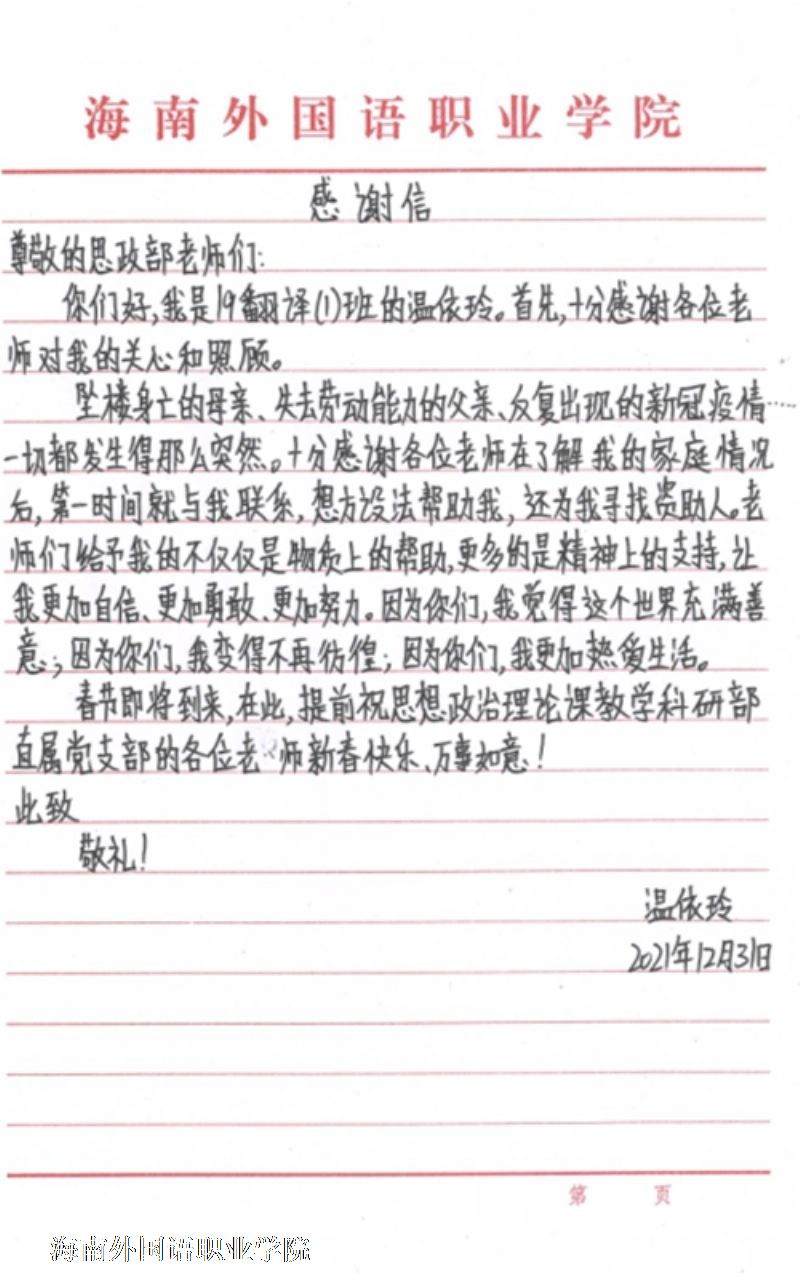 海南外国语职业学院
感谢信
尊敬的思政部老师们:
你们好,我是19翻译(1)班的温依玲。首先,十分感谢各位老
师对我的关心和照顾。
坠楼身亡的母亲、失去劳动能力的父亲、反复出现的新冠疫情……
一切都发生得那么突然。十分感谢各位老师在了解我的家庭情况
后,第一时间就与我联系,想方设法帮助我,还为我寻找资助人。老
师们给予我的不仅仅是物质上的帮助,更多的是精神上的支持,让
我更加自信、更加勇敢、更加努力。因为你们,我觉得这个世界充满善
意;因为你们,我变得不再彷徨;因为你们,我更加热爱生活。
春节即将到来,在此,提前祝思想政治理论课教学科研部
直属党支部的各位老师新春快乐、万事如意!
此致
敬礼!
温依玲
2021年12月31日
第 页
海南外国语职业学院